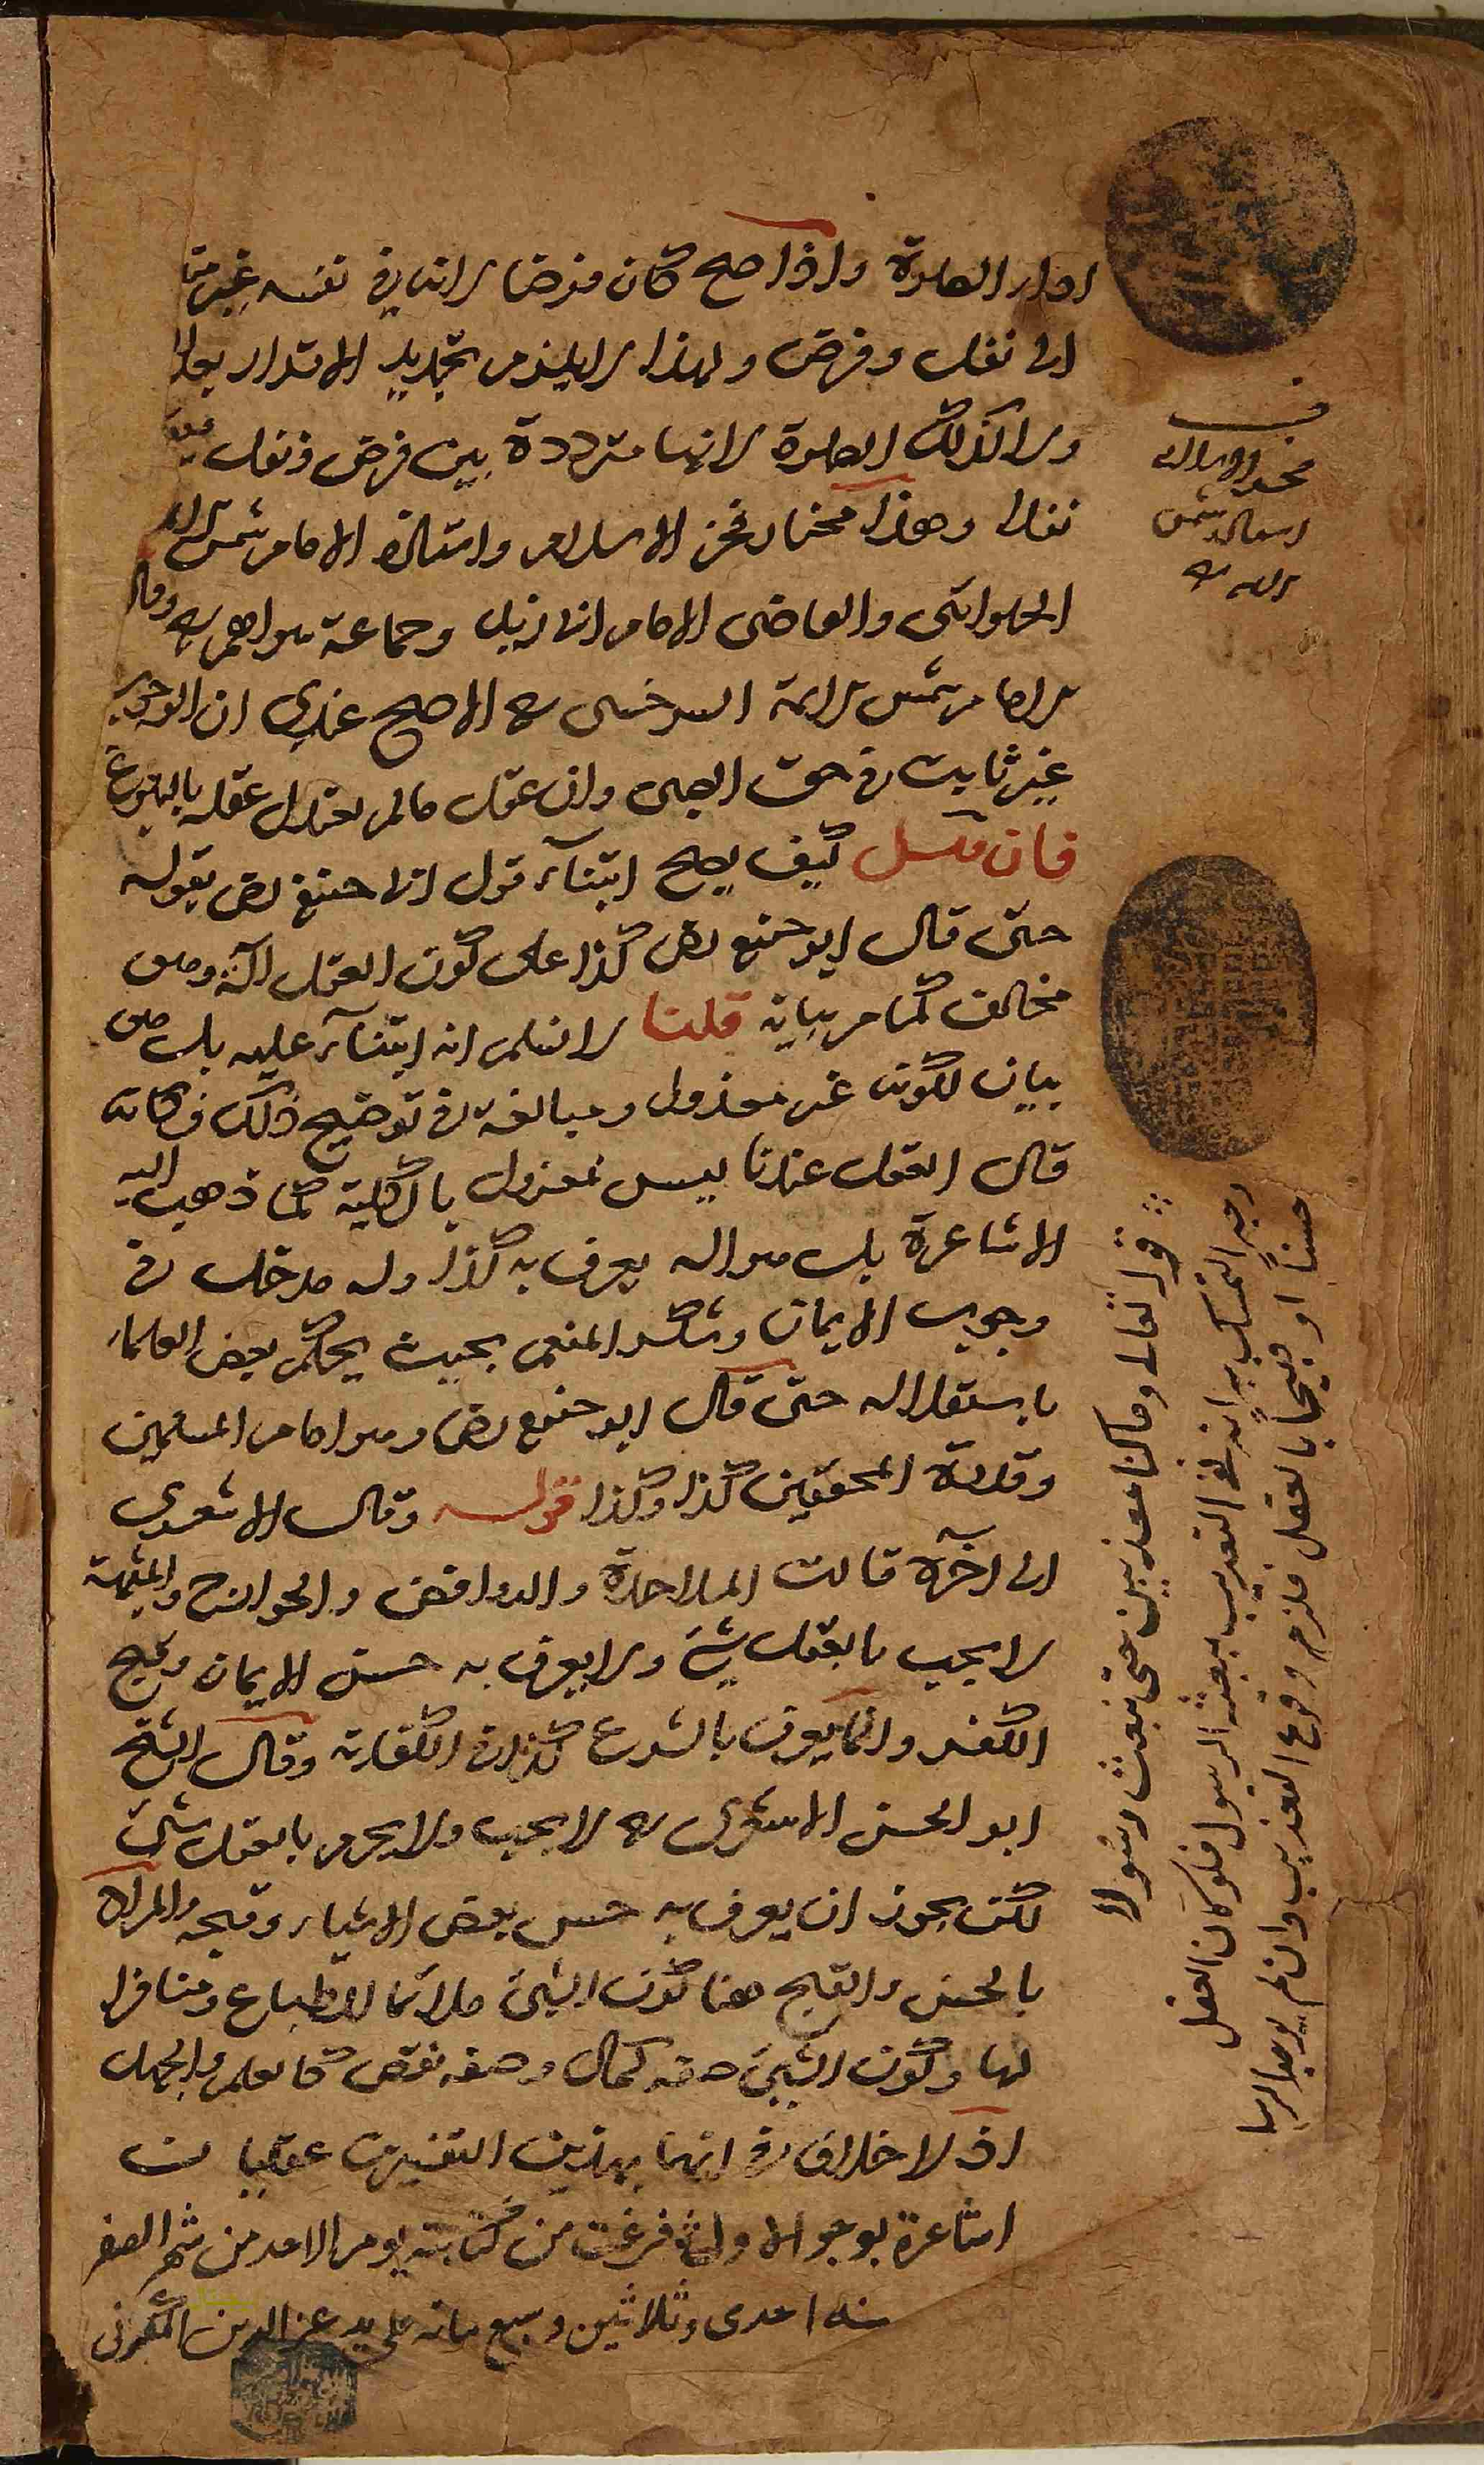 اداء الصلوة واذا صح كان فرضا لانه في نفسه غير
الى نفل وفرض ولهذا لا يلزم تجديد الاقرار
ولا كذلك الصلوة لانها مترددة بين فرض ونفل
نفلا وهذا مختار فخر الاسلام واستاذه الامام شمس
الحلوائي والقاضي الامام ابي زيد وجماعة سواهم وقال
الامام شمس الايمة السرخسي الاصح عندي ان الوجوب
غير ثابت في حق الصبي وان عقل ما لم يعتدل عقله بالبلوغ
فان قيل كيف يصح ابتناء قول ابي حنيفة رض بقوله
حتى قال ابو حنيفة رض كذا على كون العقل آلة وهو
مخالف كما مر بيانه قلنا لا نسلم انه ابتناء عليه بل هو
بيان لكونه غير معزول ومبالغة في توضيح ذلك فكانه
قال العقل عندنا ليس بمعزول بالكلية كما ذهب اليه
الاشاعرة بل هو آلة يعرف به كذا وله مدخل في
وجوب الايمان وشكر المنعم بحيث يحكم بعض العلماء
باستقلاله حتى قال ابو حنيفة رض وهو امام المسلمين
وقدوة المحققين كذا وكذا قوله وقال الاشعري
الى آخره قالت الملاحدة والروافض والخوارج والمشبهة
لا يجب بالعقل شيء ولا يعرف به حسن الايمان وقبح
الكفر وانما يعرف بالشرع كذا في الكفاية وقال الشيخ
ابو الحسن الاشعري لا يجب ولا يحرم بالعقل شيء
لكن يجوز ان يعرف به حسن بعض الاشياء وقبحه والمراد
بالحسن والقبح هنا كون الشيء ملائما للطباع ومنافرا
لها وكون الشيء صفة كمال وصفة نقص كالعلم والجهل
اذ لا خلاف في انهما بهذين التفسيرين عقليان
اشاعرة فرغت من كتابته يوم الاحد من شهر الصفر
سنه احدى وثلاثين وسبع مائه على يد عز الدين
قوله تعالى وما كنا معذبين حتى نبعث رسولا
وجه التمسك به انه نفى التعذيب ببعثة الرسول فلو كان العقل
حسنا او قبيحا بالعقل فلزم وقوع التعذيب وان لم يوجد